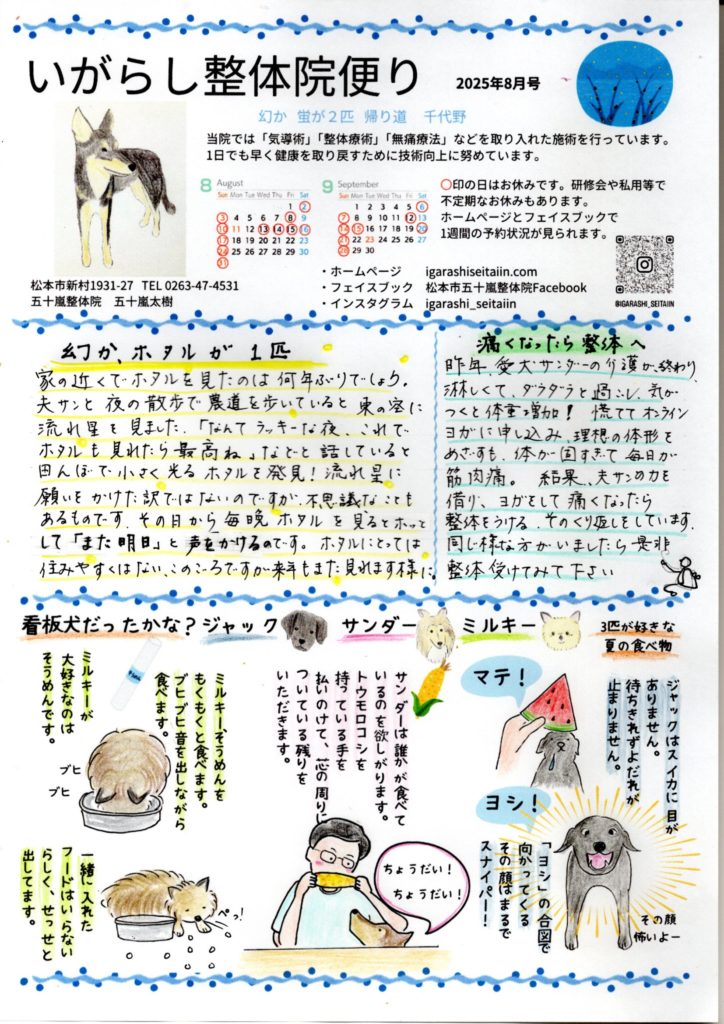 いがらし整体院便り
2025年8月号
幻か 蛍が2匹 帰り道 千代野
当院では「気導術」「整体療術」「無痛療法」などを取り入れた施術を行っています。
1日でも早く健康を取り戻すために技術向上に努めています。
8 August
Sun Mon Tue Wed Thu Fri Sat
1 2
3 4 5 6 7 8 9
10 11 12 13 14 15 16
17 18 19 20 21 22 23
24 25 26 27 28 29 30
31
9 September
Sun Mon Tue Wed Thu Fri Sat
1 2 3 4 5 6
7 8 9 10 11 12 13
14 15 16 17 18 19 20
21 22 23 24 25 26 27
28 29 30
○印の日はお休みです。研修会や私用等で
不定期なお休みもあります。
ホームページとフェイスブックで
1週間の予約状況が見られます。
@IGARASHI_SEITAIIN
松本市新村1931-27 TEL 0263-47-4531
五十嵐整体院 五十嵐太樹
・ホームページ igarashiseitaiin.com
・フェイスブック 松本市五十嵐整体院Facebook
・インスタグラム igarashi_seitaiin
幻か、ホタルが1匹
家の近くでホタルを見たのは何年ぶりでしょう。
夫サンと夜の散歩で農道を歩いていると東の空に
流れ星を見ました。「なんてラッキーな夜、これで
ホタルも見れたら最高ね」などと話していると
田んぼで小さく光るホタルを発見!流れ星に
願いをかけた訳ではないのですが、不思議なことも
あるものです。その日から毎晩ホタルを見るとホッと
して「また明日」と声をかけるのです。ホタルにとっては
住みやすくはない、このごろですが来年もまた見れます様に
痛くなったら整体へ
昨年、愛犬サンダーの介護が終わり、
淋しくて、ダラダラと過ごし、気が
つくと体重増加!慌ててオンライン
ヨガに申し込み、理想の体形を
めざすも、体が固すぎて毎日が
筋肉痛。結果、夫サンの力を
借り、ヨガをして痛くなったら
整体をうける。そのくり返しをしています。
同じ様な方がいましたら是非
整体受けてみて下さい
看板犬だったかな? ジャック サンダー ミルキー
3匹が好きな
夏の食べ物
ジャックはスイカに目が
ありません。
待ちきれずよだれが
止まりません。
マテ!
ヨシ!
「ヨシ」の合図で
向かってくる
その顔はまるで
スナイパー!
その顔
怖いよー
サンダーは誰かが食べて
いるのを欲しがります。
トウモロコシを
持っている手を
払いのけて、芯の周りに
ついている残りを
いただきます。
ちょうだい!
ちょうだい!
ミルキーが
大好きなのは
そうめんです。
ミルキー、そうめんを
もくもくと食べます。
ブヒブヒ音を出しながら
食べます。
ブヒ
ブヒ
一緒に入れた
フードはいらない
らしく、せっせと
出してます。
ぺっ!